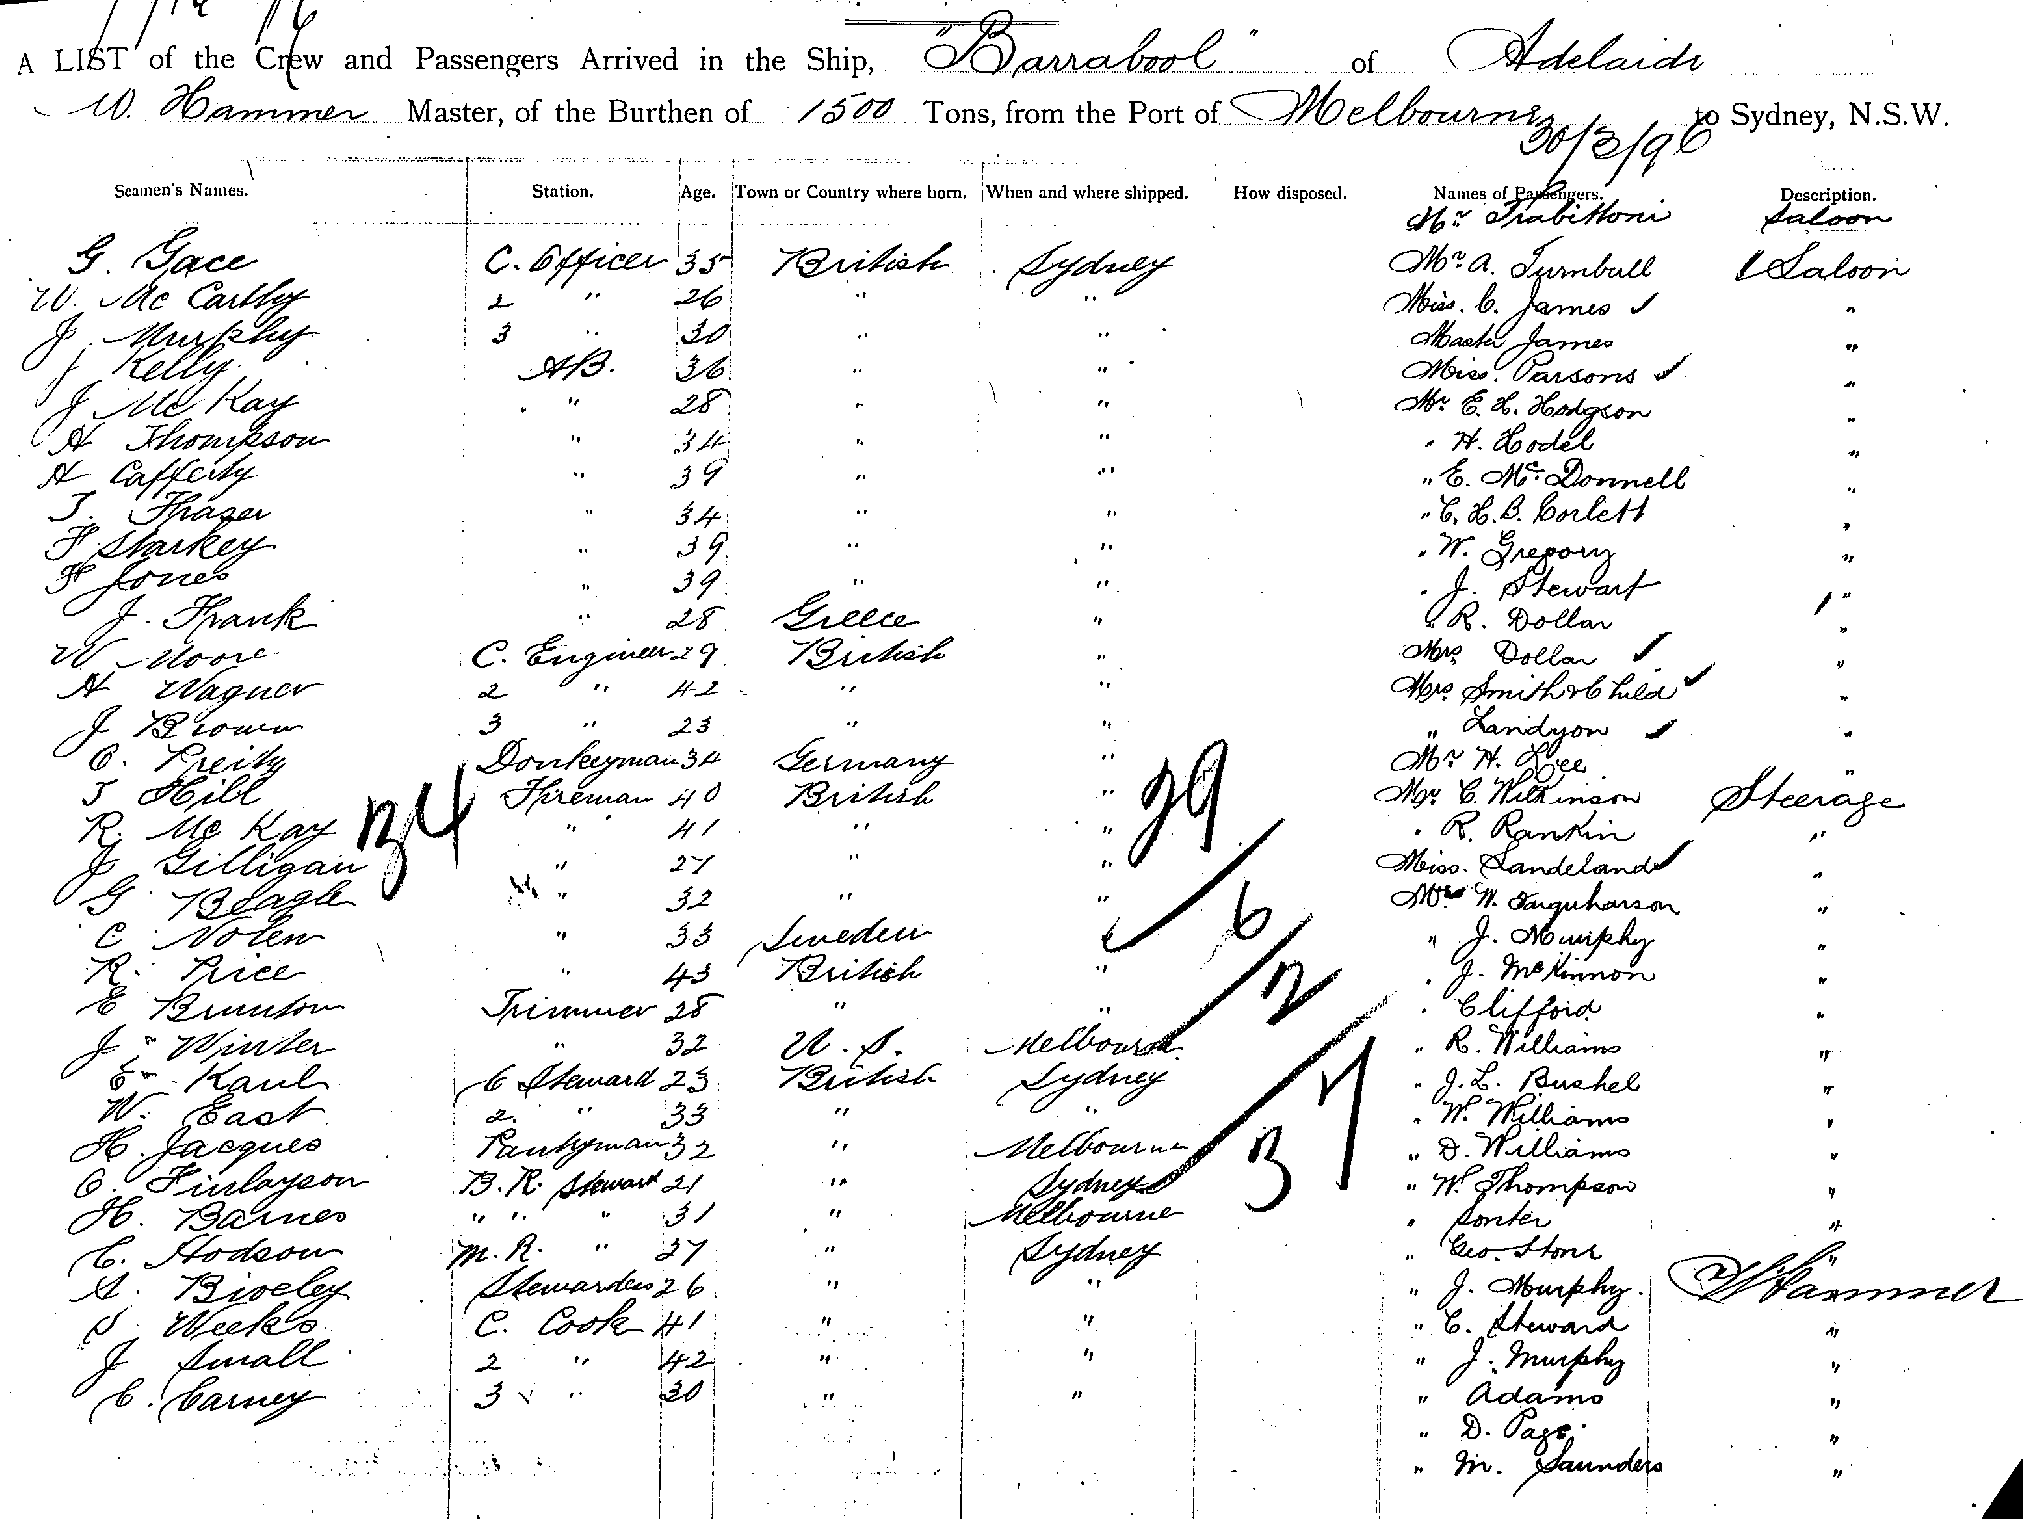 A LIST of the Crew and Passengers Arrived in the Ship, "Barrabool" of Adelaide
W. Hammer Master, of the Burthen of 1500 Tons, from the Port of Melbourne to Sydney, N.S.W.
30/3/96
Seamen's Names. Station. Age. Town or Country where born. When and where shipped. How disposed. Names of Passengers. Description.
Mr Saloon
G. Gace C. Officer 35 British Sydney Mr A. Turnbull 1 Saloon
W. Mc Carthy 2 " 26 " " Miss. C. James "
J Murphy 3 " 30 " Master James "
J Kelly AB. 36 " " Miss. Parsons "
J Mc Kay " 28 " " Mr E. H. Hodgson "
A Thompson " 34 " " " H. Hodel "
A Cafferty " 39 " " " E. Mc Donnell "
T. Frazer " 34 " " " C. H. B. Corlett "
F Starkey " 39 " " " W. Gregory "
F Jones " 39 " " " J. Stewart "
J. Frank " 28 Greece " " R. Dollar "
W Moore C. Engineer 29 British " Mrs Dollar "
A Wagner 2 " 42 " " Mrs Smith & Child "
J Brown 3 " 23 " " " Landyon "
C. Donkeyman 34 Germany " Mr H. Lee "
T Hill Fireman 40 British " Mr C. Wilkinson Steerage
R. Mc Kay " 41 " " " R. Rankin "
J Gilligan " 27 " " Miss. Sandeland "
G Beagle " 32 " " Mr W. Farquharson "
C Nolen " 33 Sweden " " J. Murphy "
R. Price " 43 British " " J. McKinnon "
E Brunton Trimmer 28 " " " Clifford "
J Winter " 32 U. S. Melbourne " R. Williams "
Kaul C Steward 23 British Sydney " J. L. Bushel "
W. East 2 " 33 " " " W. Williams "
H. Jacques Pantryman 32 " Melbourne " D. Williams "
C. Finlayson B. R. Steward 21 " Sydney " W. Thompson "
H. Barnes " " " 31 " Melbourne " Sonter "
C. Hodson M. R. " 27 " Sydney " Geo. Stone "
A. Biveley Stewardess 26 " " " J. Murphy. W Hammer
S Weeks C. Cook 41 " " " C. Steward "
J Small 2 " 42 " " " J. Murphy "
C. Carney 3 " 30 " " " Adams "
" D. Page "
" M. Saunders "
34
29
6
2
37